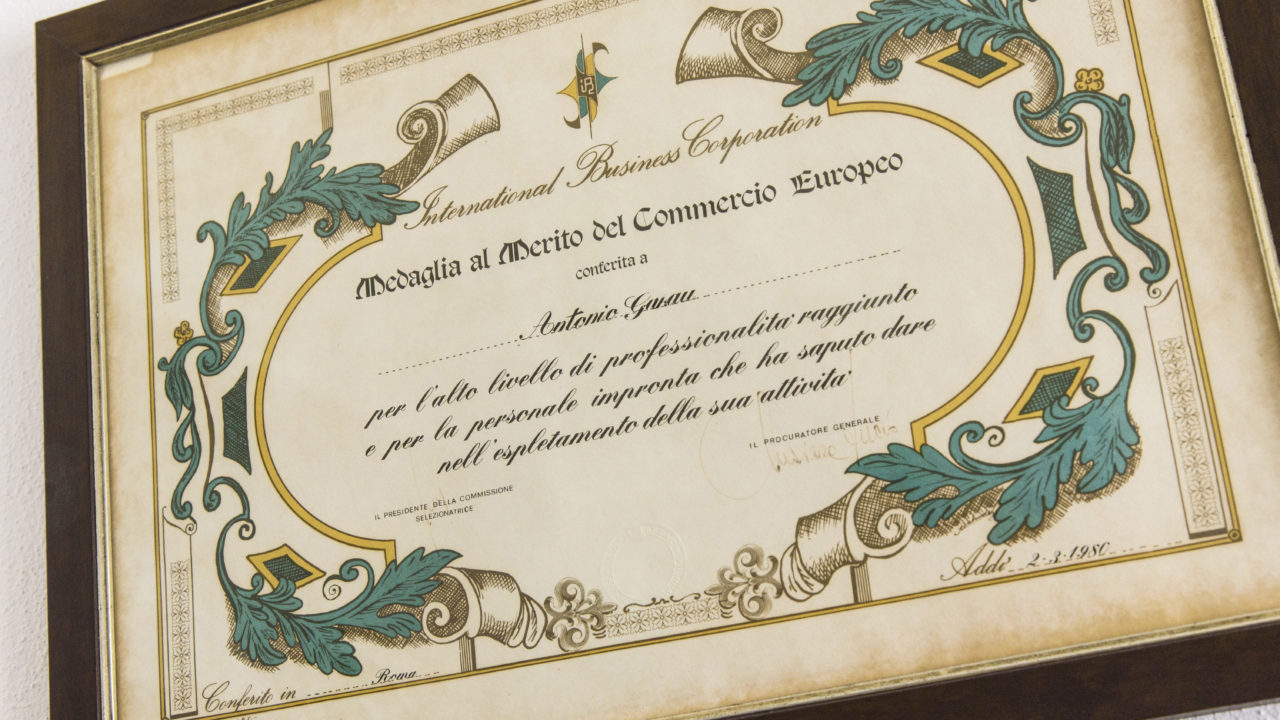 International Business Corporation
Medaglia al Merito del Commercio Europeo
conferita a
Antonio Gusau
per l'alto livello di professionalita' raggiunto
e per la personale impronta che ha saputo dare
nell'espletamento della sua attivita'
IL PROCURATORE GENERALE
IL PRESIDENTE DELLA COMMISSIONE
SELEZIONATRICE
Addi' 2-3-1980
Conferito in Roma